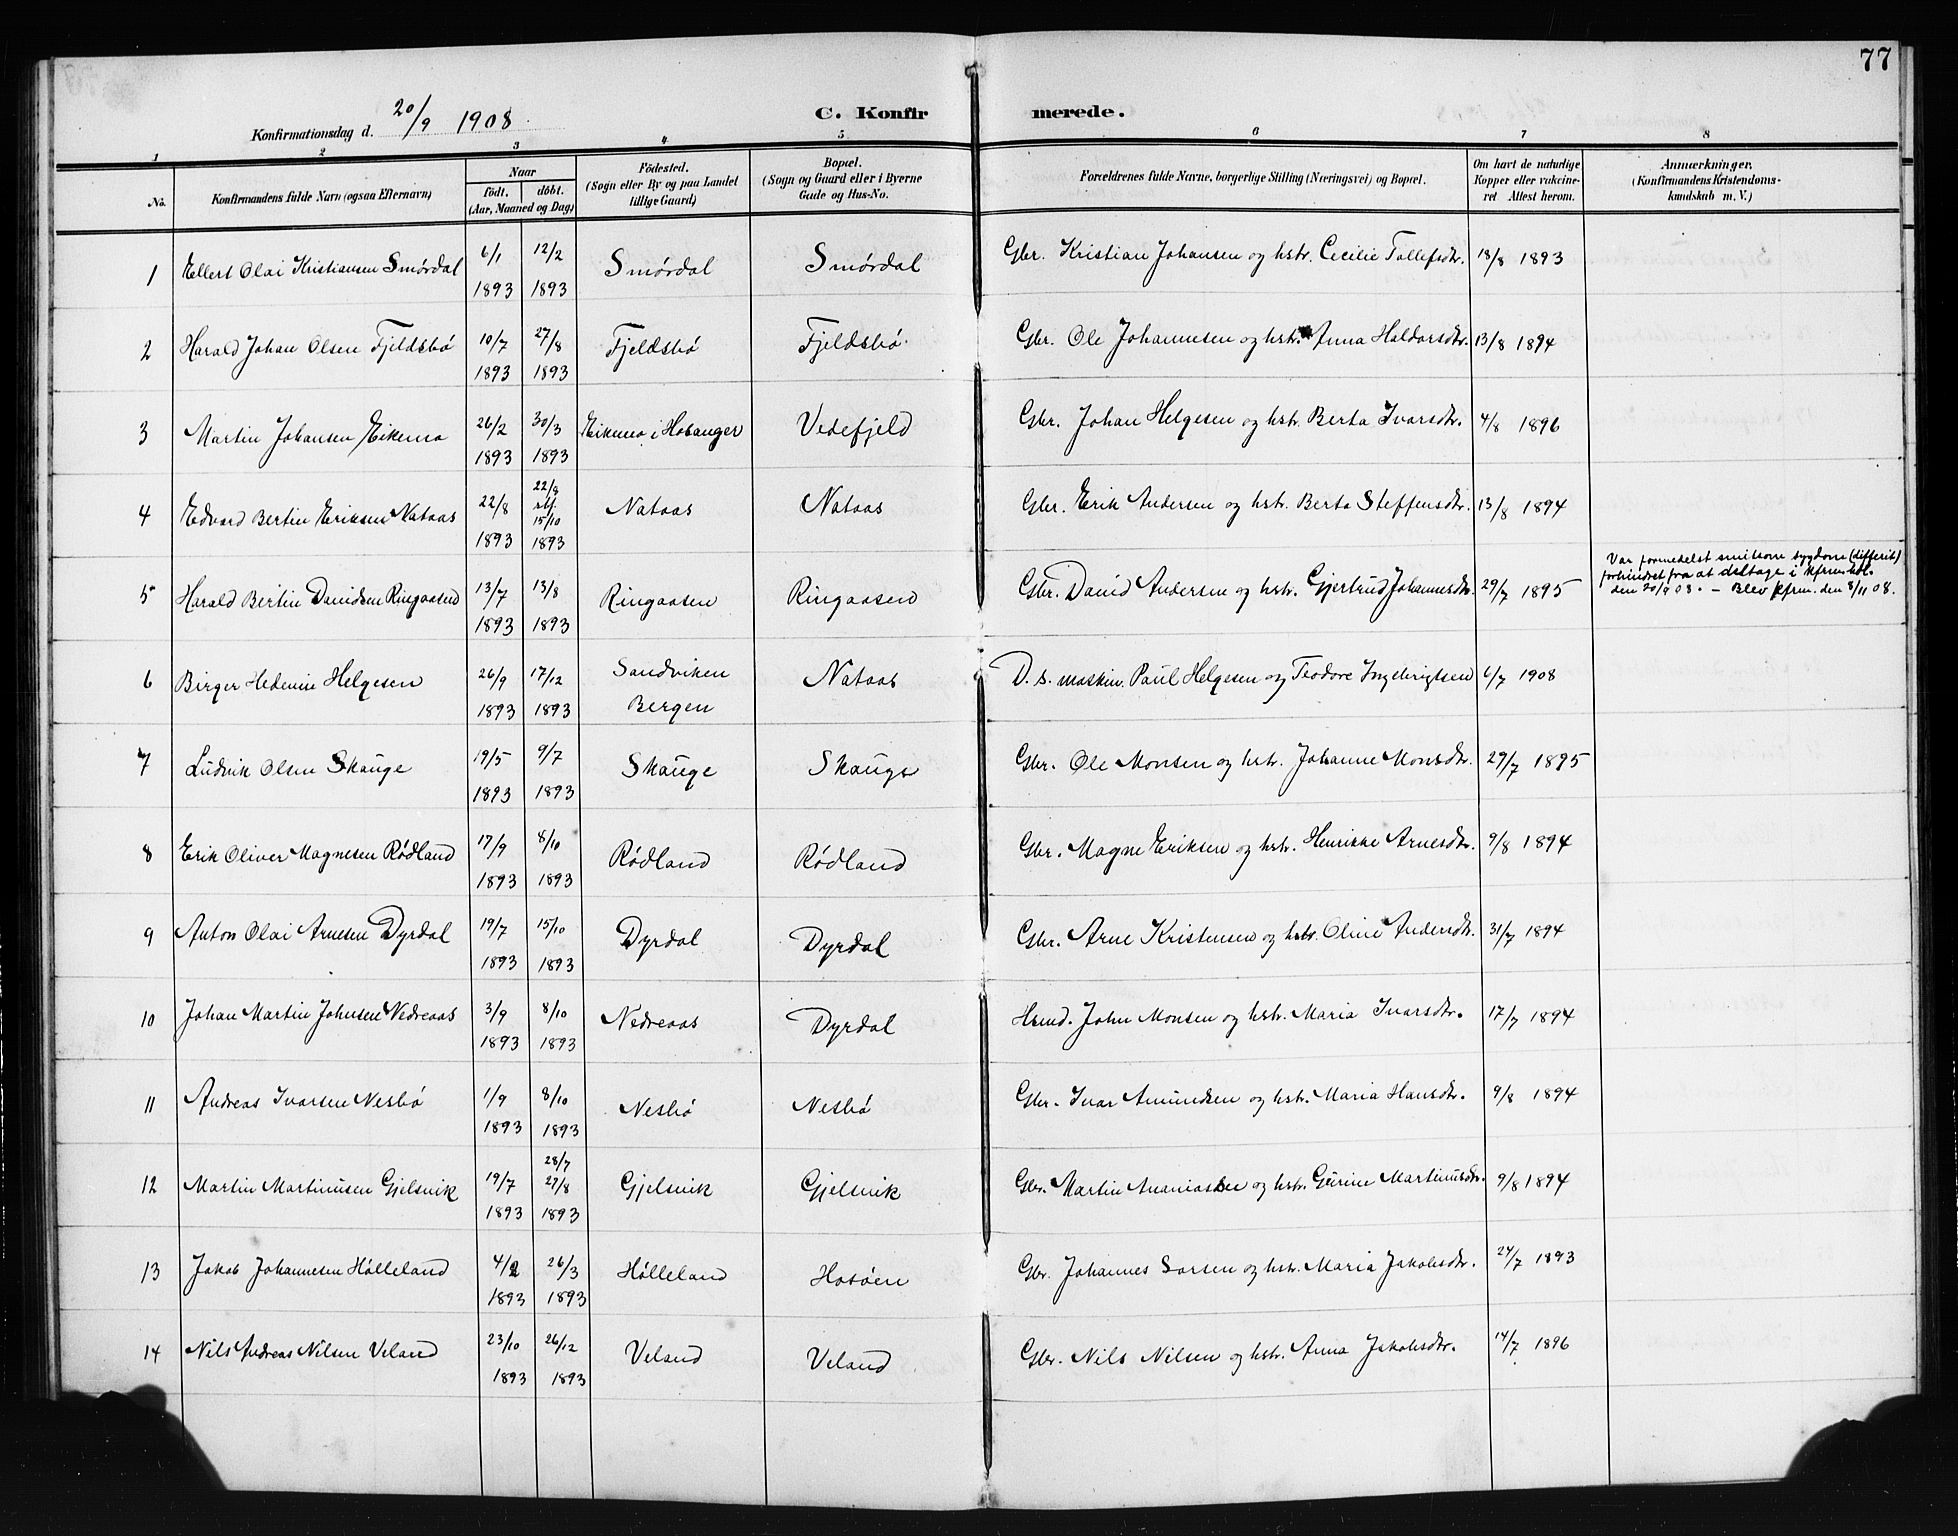 77
Konfirmationsdag d. 20/9 1908.
C. Konfirmerede.
1 2 3 4 5 6 7 8
No. Konfirmandens fulde Navn (ogsaa Efternavn). Naar födt. döbt. (Aar, Maaned og Dag) Födested. (Sogn eller By og paa Landet tillige Gaard) Bopæl. (Sogn og Gaard eller i Byerne Gade og Hus-No. Forældrenes fulde Navne, borgerlige Stilling (Næringsvei) og Bopæl. Om havt de naturlige Kopper eller vakcineret Attest herom. Anmærkninger. (Konfirmandens Kristendomskundskab m. V.)
1 Ellert Olai Kristiansen Smørdal 6/1 1893 12/2 1893 Smørdal Smørdal Gbr. Kristian Johansen og hstr. Cecilie Tollefsdtr. 18/8 1893
2 Harald Johan Olsen Fjeldsbø 10/7 1893 27/8 1893 Fjeldsbø Fjeldsbø Gbr. Ole Johannesen og hstr. Anna Haldorsdtr. 13/8 1894
3 Martin Johansen Eikemo 26/2 1893 30/3 1893 Eikemo i Hosanger Vedefjeld Gbr. Johan Helgesen og hstr. Berta Ivarsdtr. 4/8 1896
4 Edvard Bertin Eriksen Nataas 22/8 1893 22/9 stf. 15/10 1893 Nataas Nataas Gbr. Erik Andersen og hstr. Berta Steffensdtr. 13/8 1894
5 Harald Bertin Davidsen Ringaasen 13/7 1893 13/8 1893 Ringaasen Ringaasen Gbr. David Andersen og hstr. Gjertrud Johannesdtr. 29/7 1895 Var formedelst smitsom sygdom (differit) forhindret fra at deltage i kfrm. den 20/9 08. – Blev kfrm. den 8/11 08.
6 Birger Hedevin Helgesen 26/9 1893 17/12 1893 Sandviken Bergen Nataas D. s. maskin. Paul Helgesen og Teodore Ingebrigtsen 6/7 1908
7 Ludvik Olsen Skauge 19/5 1893 9/7 1893 Skauge Skauge Gbr. Ole Monsen og hstr. Johanne Monsdtr. 29/7 1895
8 Erik Oliver Magnesen Rødland 17/9 1893 8/10 1893 Rødland Rødland Gbr. Magne Eriksen og hstr. Henrikke Arnesdtr. 9/8 1894
9 Anton Olai Arnesen Dyrdal 19/7 1893 15/10 1893 Dyrdal Dyrdal Gbr. Arne Kristensen og hstr. Oline Andersdtr. 31/7 1894
10 Johan Martin Johnsen Nedreaas 3/9 1893 8/10 1893 Nedreaas Dyrdal Hsmd. John Monsen og hstr. Maria Ivarsdtr. 17/7 1894
11 Andreas Ivarsen Nesbø 1/9 1893 8/10 1893 Nesbø Nesbø Gbr. Ivar Amundsen og hstr. Maria Hansdtr. 9/8 1894
12 Martin Martinusen Gjelsvik 19/7 1893 28/7 27/8 1893 Gjelsvik Gjelsvik Gbr. Martin Ananiassen og hstr. Gurine Martinusdtr. 9/8 1894
13 Jakob Johannesen Hølleland 4/2 1893 26/3 1893 Hølleland Hosøen Gbr. Johannes Larsen og hstr. Maria Jakobsdtr. 24/7 1893
14 Nils Andreas Nilsen Veland 23/10 1893 26/12 1893 Veland Veland Gbr. Nils Nilsen og hstr. Anna Jakobsdtr. 14/7 1896